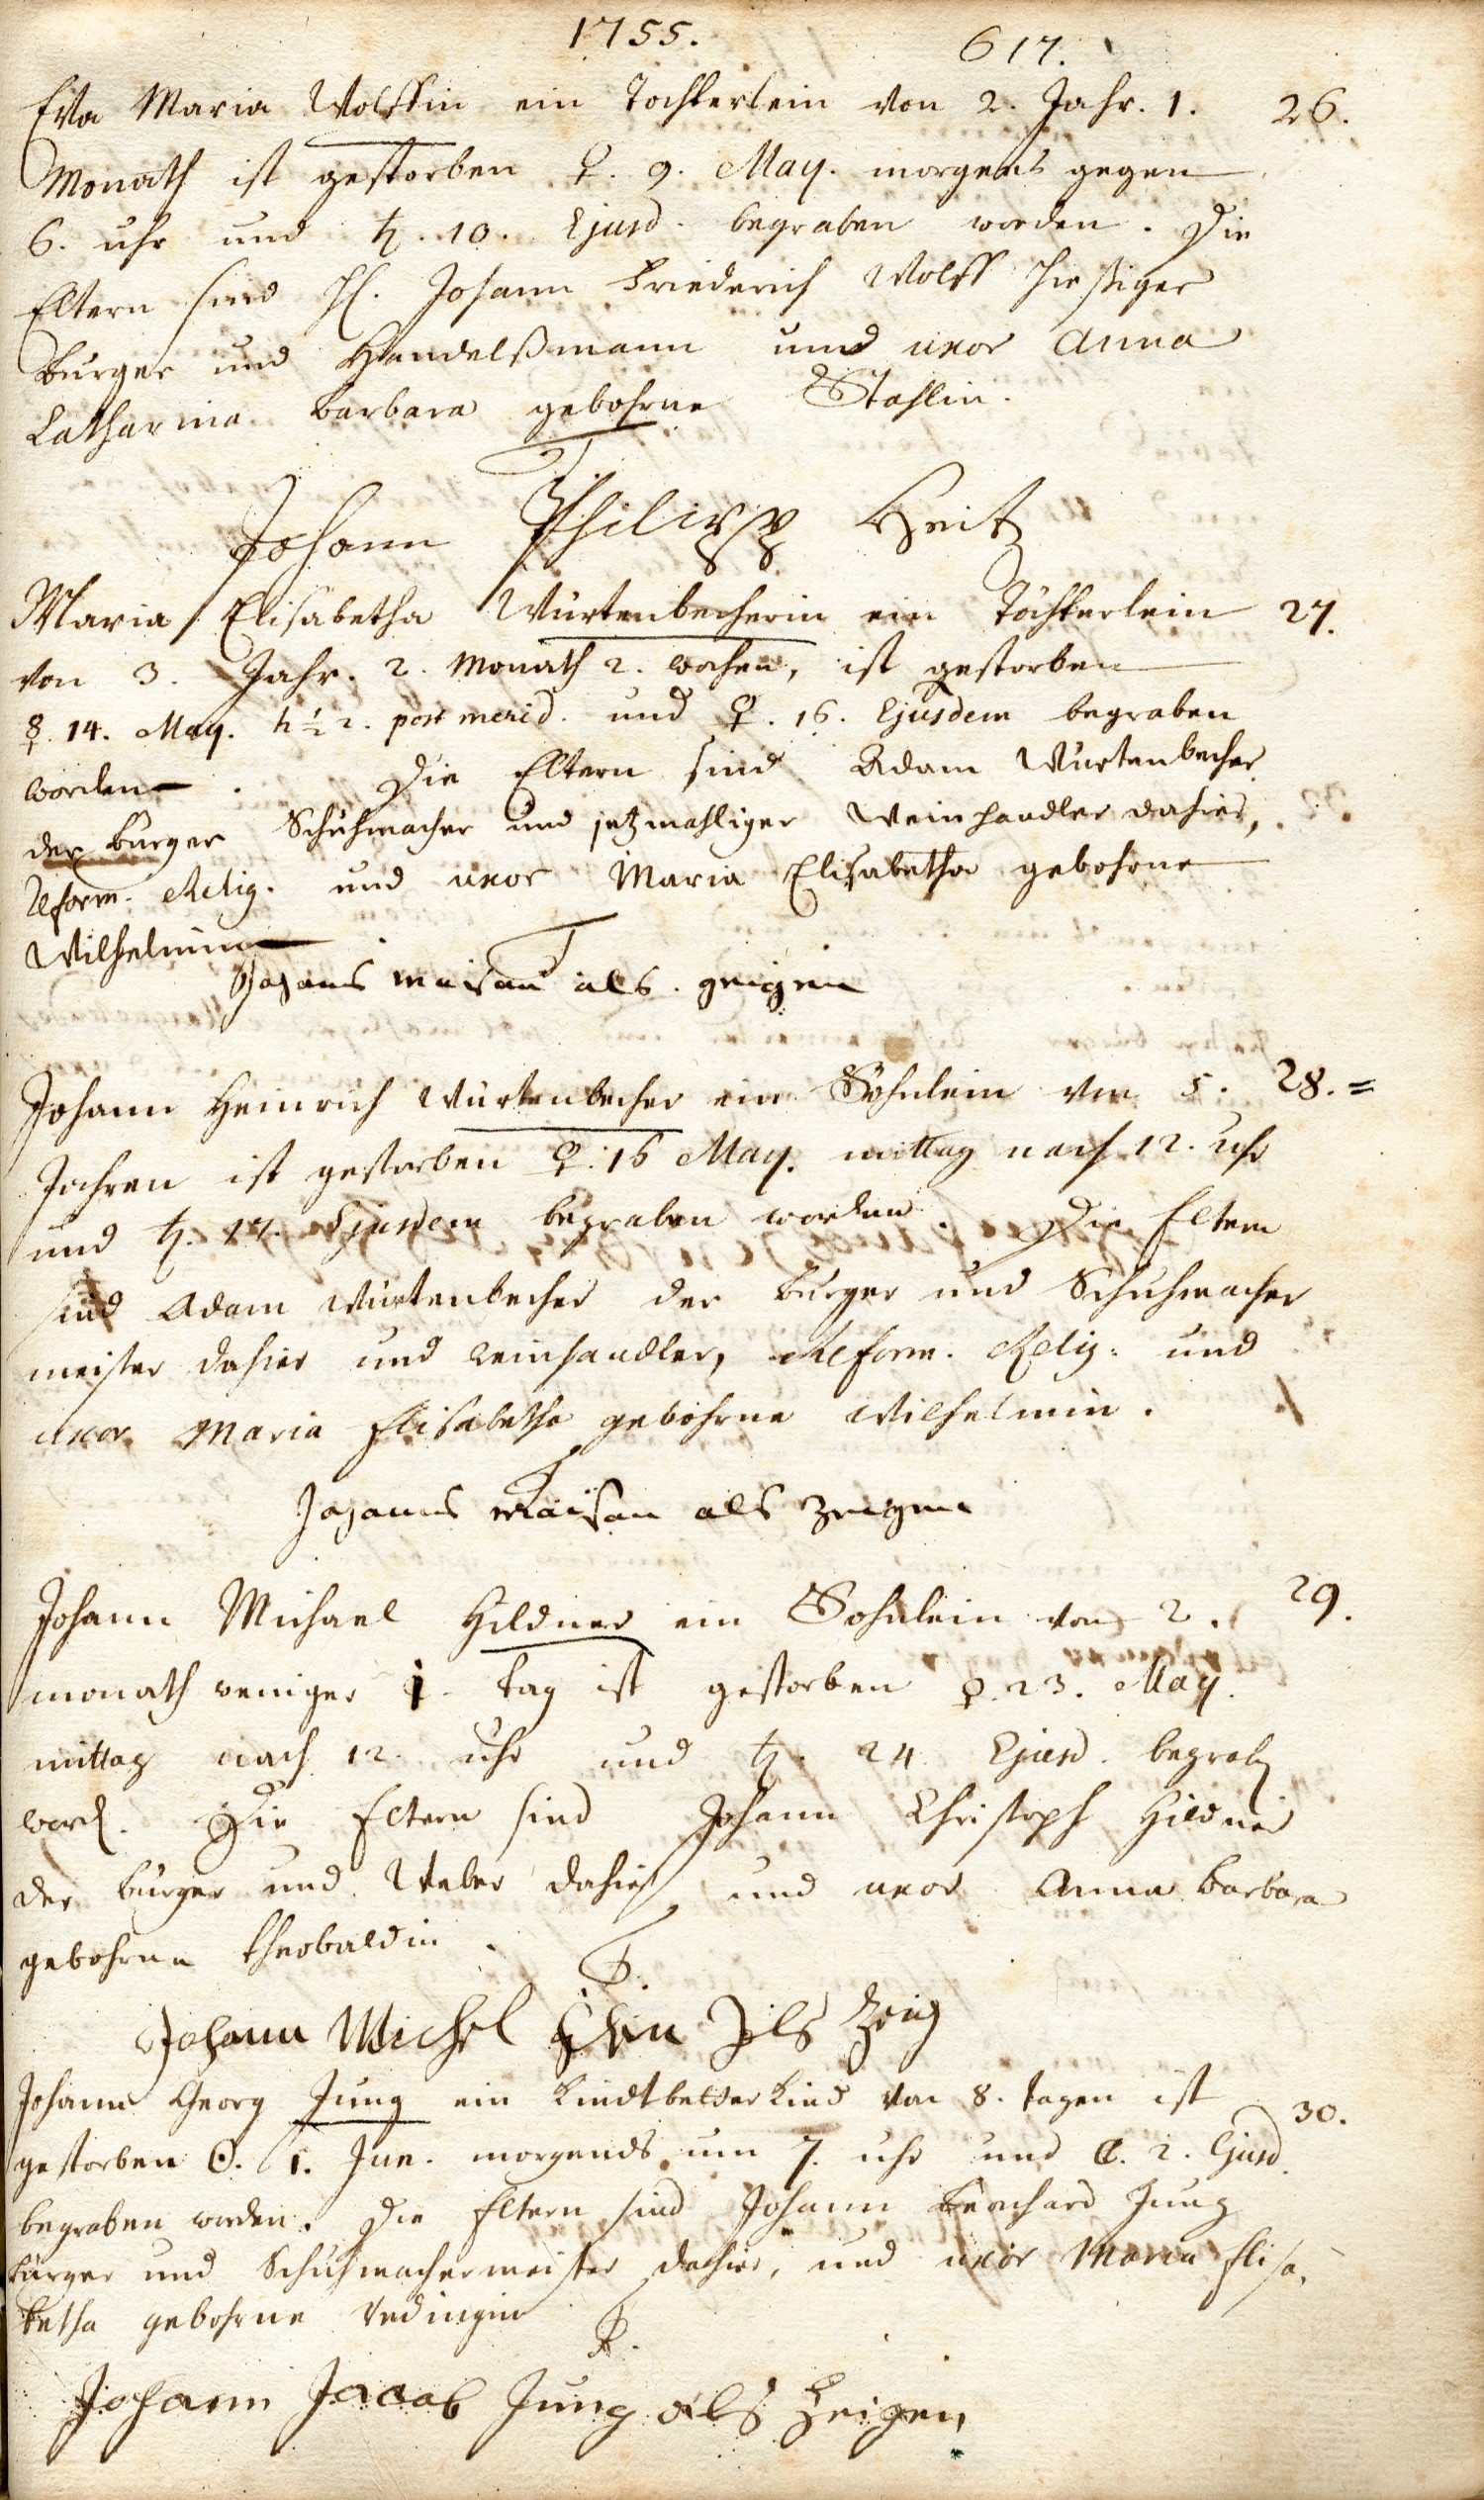 1755. 617.
Eva Maria Wolffin ein Tochterlein von 2. Jahr. 1. 26.
Monath ist gestorben ♀. 9. May. morgens gegen
6. uhr und ♄. 10. Ejusd. begraben worden. Die
Eltern sind H. Johann Friederich Wolff hießiger
burger und Handelßmann und uxor Anna
Catharina Barbara gebohrne Stahlin.
Johann Philipp Heitz
Maria Elisabetha Würtenbecherin ein Töchterlein 27.
von 3. Jahr. 2. Monath 2. wochen, ist gestorben
☿. 14. May. h ½ 2. post merid. und ♀. 16. Ejusdem begraben
worden. Die Eltern sind Adam Würtenbecher
der burger Schuhmacher und jetzmahliger Weinhandler dahier,
Reform. Relig. und uxor Maria Elisabetha gebohrne
Wilhelmin.
Johans als
Johann Heinrich Würtenbecher ein Söhnlein von 5. 28.=
Jahren ist gestorben ♀. 16 May. mittag nach 12. uhr
und ♄. 17. Ejusdem begraben worden. Die Eltern
sind Adam Würtenbecher der burger und Schuhmacher
meister dahier und weinhandler, Reform. Relig: und
uxor Maria Elisabetha gebohrne Wilhelmin.
Johanns als zeigen
Johann Michael Hildner ein Sohnlein von 2. 29.
monath weniger 1. tag ist gestorben ♀. 23. May.
mittag nach 12. uhr und ♄. 24 Ejusd. begrab
word. Die Eltern sind Johann Christoph Hildner
der burger und Weber dahier und uxor Anna Barbara
gebohrne Theobaldin.
Johann Michel Als Zeig
Johann Georg Jung ein Kindtbetter Kind von 8. tagen ist 30.
gestorben ☉. 1. Jun. morgends um 7. uhr und ☾. 2. Ejusd.
begraben worden. Die Eltern sind Johann Bernhard Jung
burger und Schuhmachermeister dahier, und uxor Maria Elisa,
betha gebohrne
Johann Jacob Jung als Zeigen